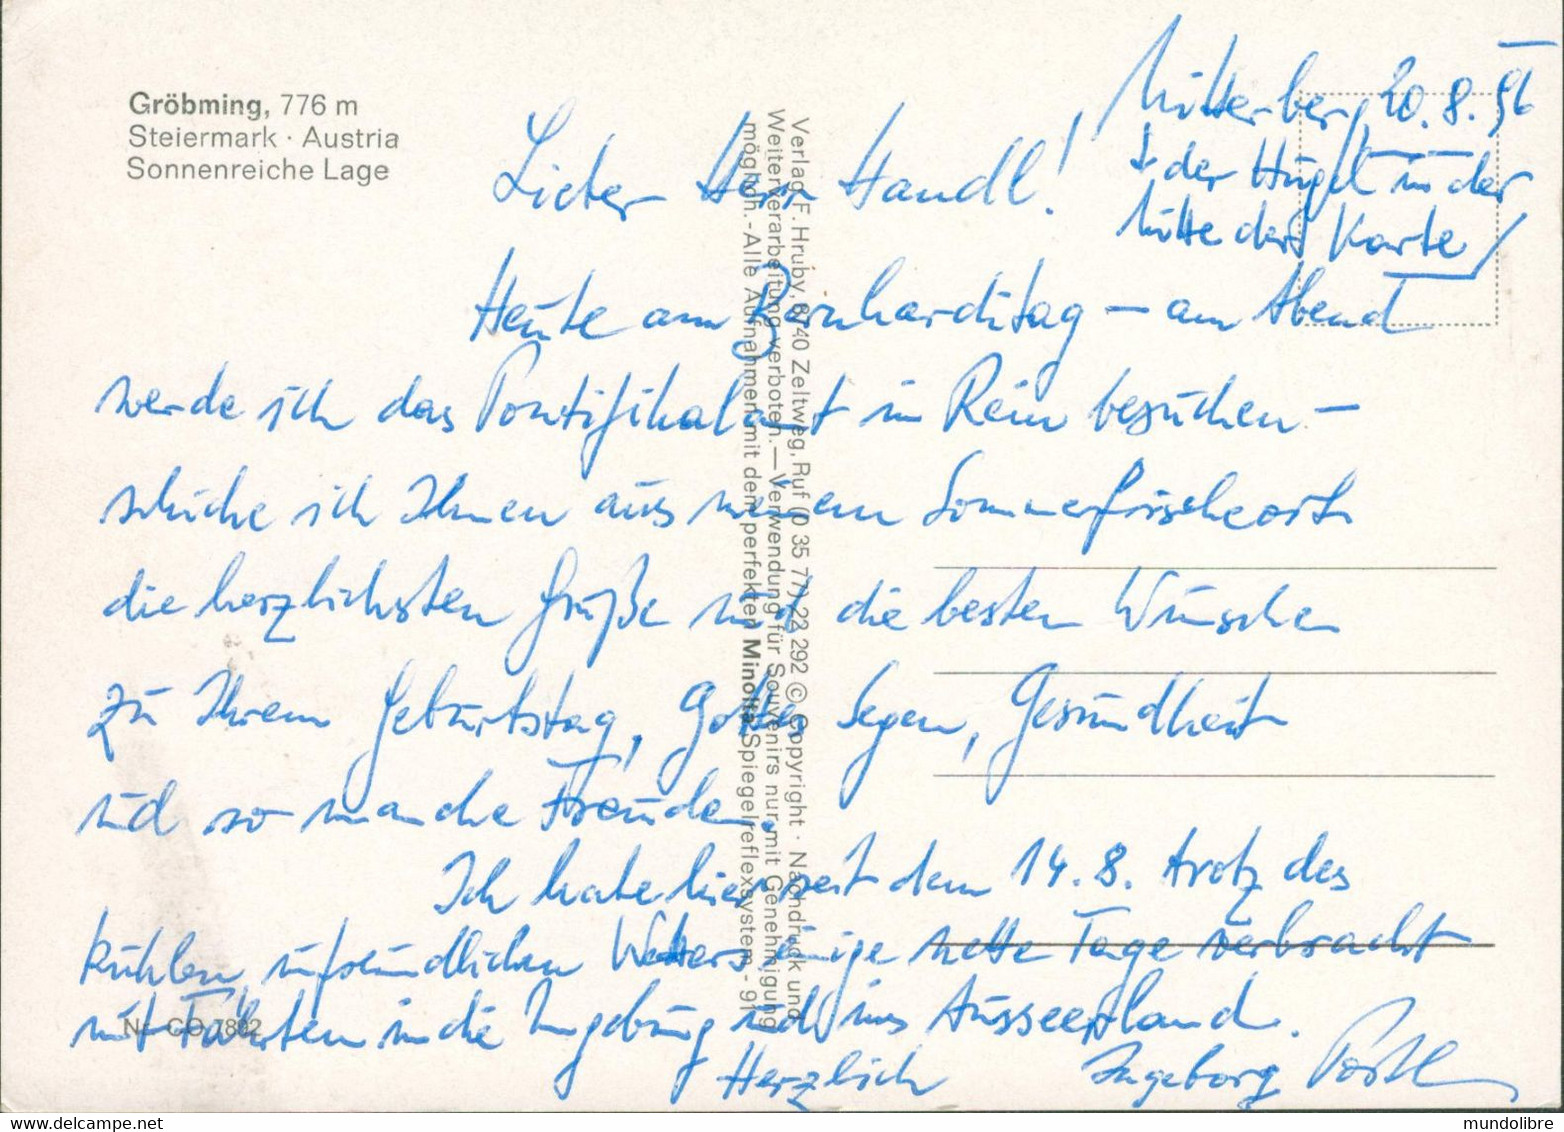 Gröbming, 776 m
Steiermark · Austria
Sonnenreiche Lage
Mitterberg, 20. 8. 96
↓ der Hügel in der
Mitte der Karte /
Lieber Herr Handl!
Heute am Bernharditag – am Abend
werde ich das Pontifikalamt in Rein besuchen –
schicke ich Ihnen aus meinem Sommerfrischeort
die herzlichsten Grüße und die besten Wünsche
zu Ihrem Geburtstag, Gottes Segen, Gesundheit
und so manche Freude.
Ich habe hier seit dem 14. 8. trotz des
kühlen, unfreundlichen Wetters einige nette Tage verbracht
mit Fahrten in die Umgebung und ins Ausseerland.
Herzlich Ingeborg
Verlag F. Hruby, 8740 Zeltweg, Ruf (0 35 77) 22 292 © Copyright · Nachdruck und
Weiterverarbeitung verboten. — Verwendung für Souvenirs nur mit Genehmigung
möglich. - Alle Aufnahmen mit dem perfekten Minolta Spiegelreflexsystem - 91
Nr. CO 7802
www.delcampe.net
mundolibre